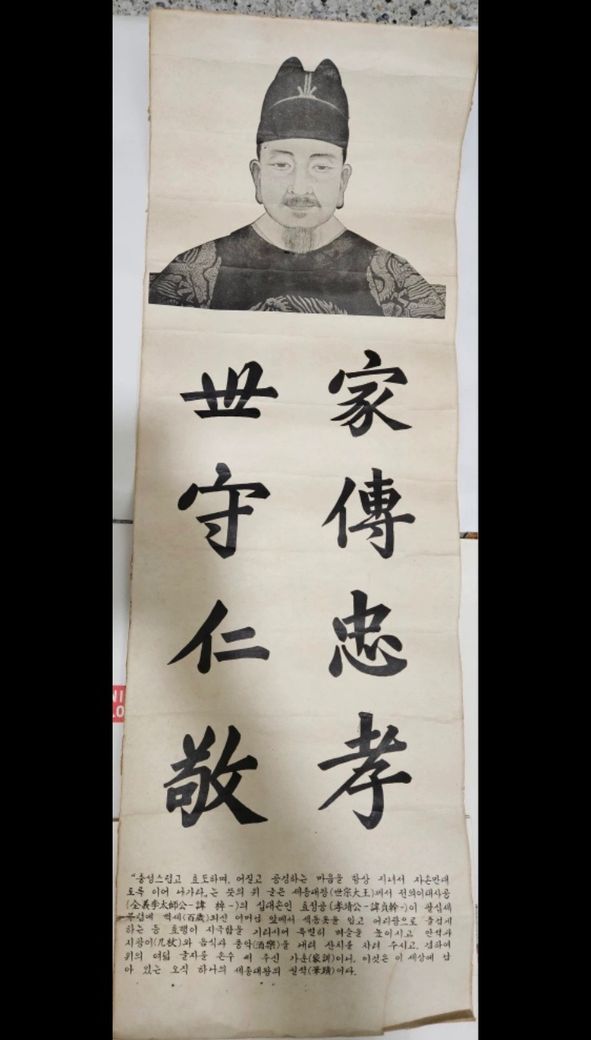 家傳忠孝
世守仁敬
“충성스럽고 효도하며, 어질고 공경하는 마음을 항상 지녀서 자손만대
토록 이어 나가라„는 뜻의 위 글은 세종대왕(世宗大王)께서 전의이태사공
(全義李太師公-諱 棹-)의 십대손인 효정공(孝靖公-諱貞幹-)이 팔십세
무렵에 백세(百歲)되신 어머님 앞에서 색동옷을 입고 어리광으로 즐겁게
하는 등 효행이 지극함을 기리시어 특별히 벼슬을 높이시고 안석과
지팡이(几杖)와 음식과 풍악(酒樂)을 내려 잔치를 차려 주시고, 겸하여
위의 여덟 글자를 손수 써 주신 가훈(家訓)이니, 이것은 이 세상에 남
아 있는 오직 하나의 세종대왕의 필적(筆蹟)이다.
NI
LO